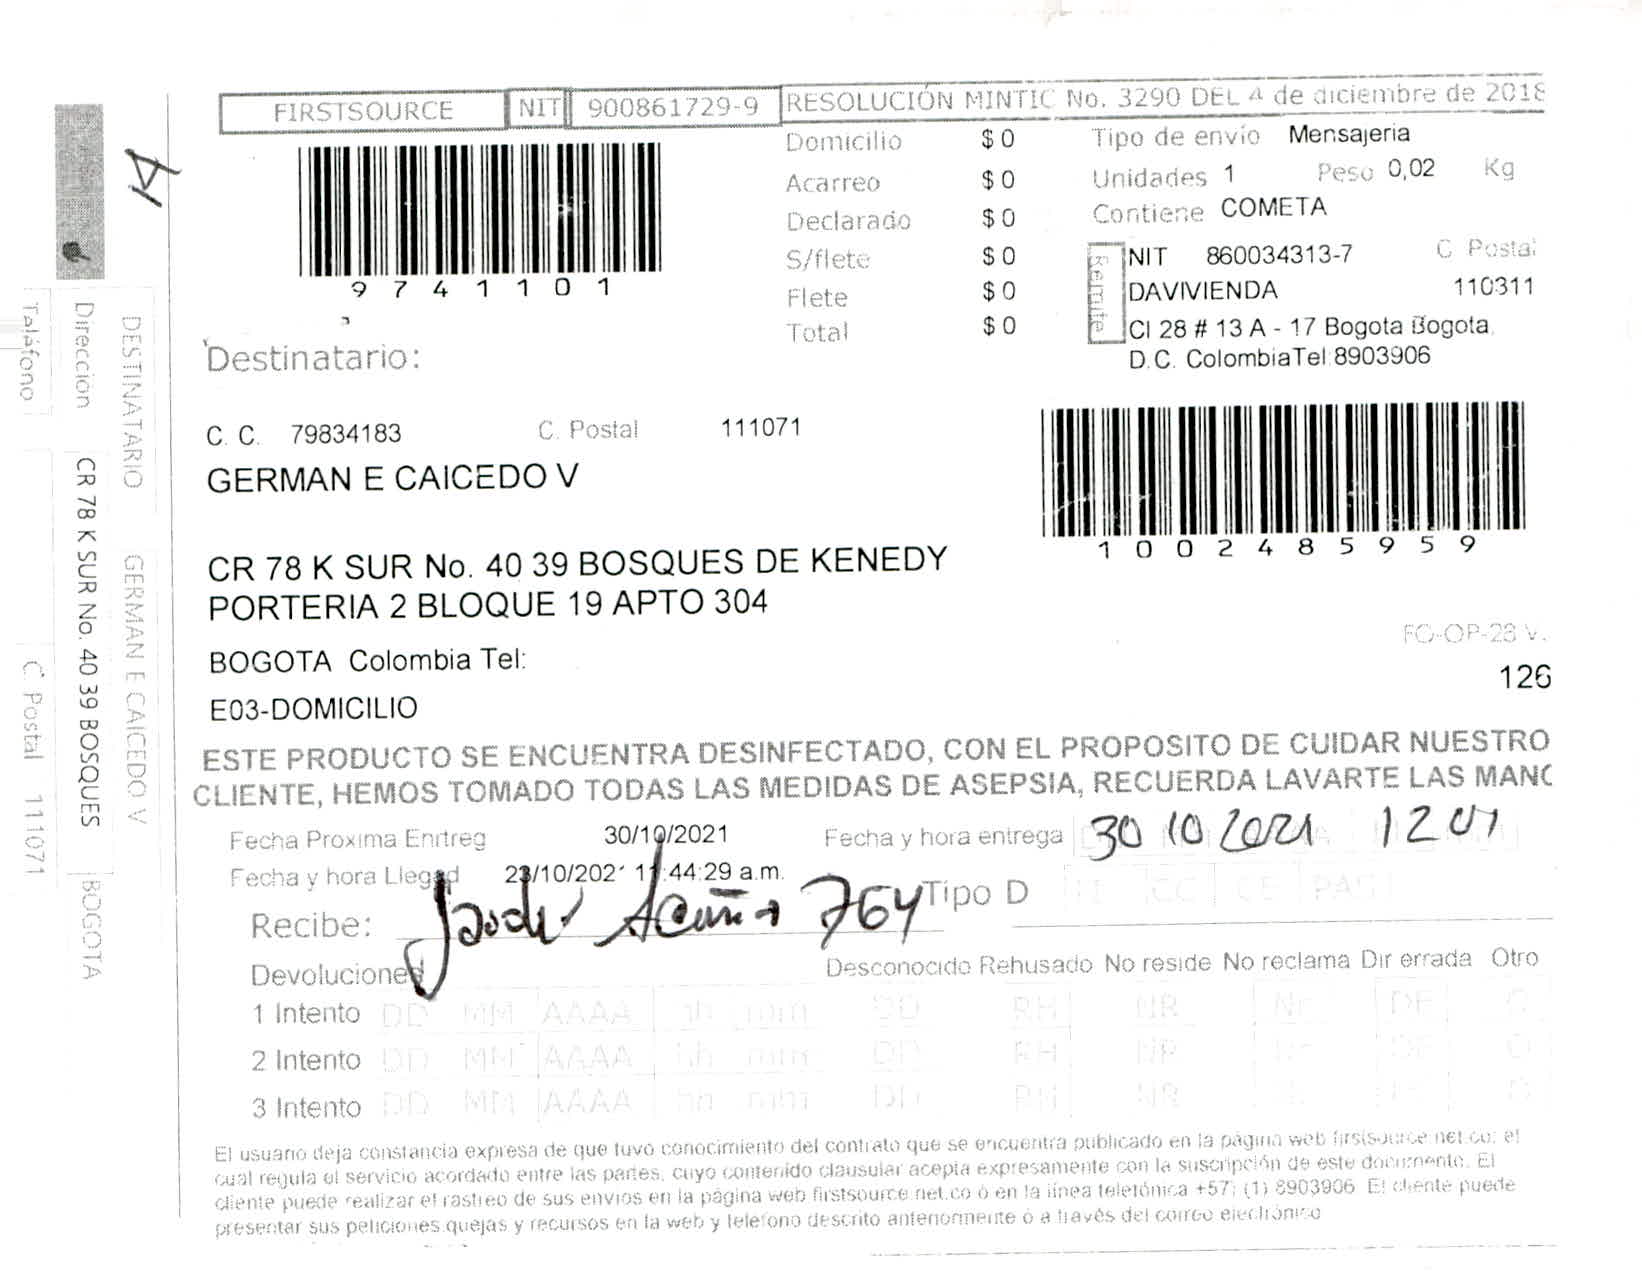 FIRSTSOURCE NIT 900861729-9 RESOLUCIÓN MINTIC No. 3290 DEL 4 de diciembre de 2018
9741101
Domicilio $ 0
Acarreo $ 0
Declarado $ 0
S/flete $ 0
Flete $ 0
Total $ 0
Tipo de envío Mensajeria
Unidades 1 Peso 0,02 Kg
Contiene COMETA
Remite
NIT 860034313-7 C Postal
DAVIVIENDA 110311
Cl 28 # 13 A - 17 Bogota Bogota,
D.C. ColombiaTel:8903906
Destinatario:
C. C. 79834183 C. Postal 111071
GERMAN E CAICEDO V
1002485959
CR 78 K SUR No. 40 39 BOSQUES DE KENEDY
PORTERIA 2 BLOQUE 19 APTO 304
BOGOTA Colombia Tel:
E03-DOMICILIO
FO-OP-28 V.
126
ESTE PRODUCTO SE ENCUENTRA DESINFECTADO, CON EL PROPOSITO DE CUIDAR NUESTRO
CLIENTE, HEMOS TOMADO TODAS LAS MEDIDAS DE ASEPSIA, RECUERDA LAVARTE LAS MANO
Fecha Proxima Enrtreg 30/10/2021 Fecha y hora entrega 30 10 2021 12 01
Fecha y hora Llegad 23/10/2021 11:44:29 a.m.
Recibe: Acuña 764 Tipo D TI CC CE PAS
Devoluciones Desconocido Rehusado No reside No reclama Dir errada Otro
1 Intento DD MM AAAA hh mm DD RH NR Nr DE O
2 Intento DD MM AAAA hh mm DD RH NR Nr DE O
3 Intento DD MM AAAA hh mm DD RH NR
El usuario deja constancia expresa de que tuvo conocimiento del contrato que se encuentra publicado en la página web firstsource.net.co; el
cual regula el servicio acordado entre las partes, cuyo contenido clausular acepta expresamente con la suscripción de este documento. El
cliente puede realizar el rastreo de sus envios en la página web firstsource.net.co ó en la línea teletónica +57; (1) 8903906 El cliente puede
presentar sus peticiones,quejas y recursos en la web y telefono descrito anteriormente o a través del correo electrónico
14
DESTINATARIO GERMAN E CAICEDO V
Direccion CR 78 K SUR No. 40 39 BOSQUES BOGOTA
Teléfono C. Postal 111071